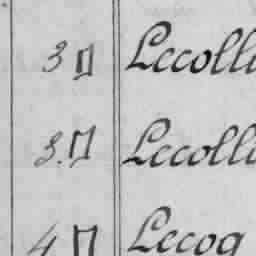 3 Lecolli
3. Lecolli
4 Lecoq